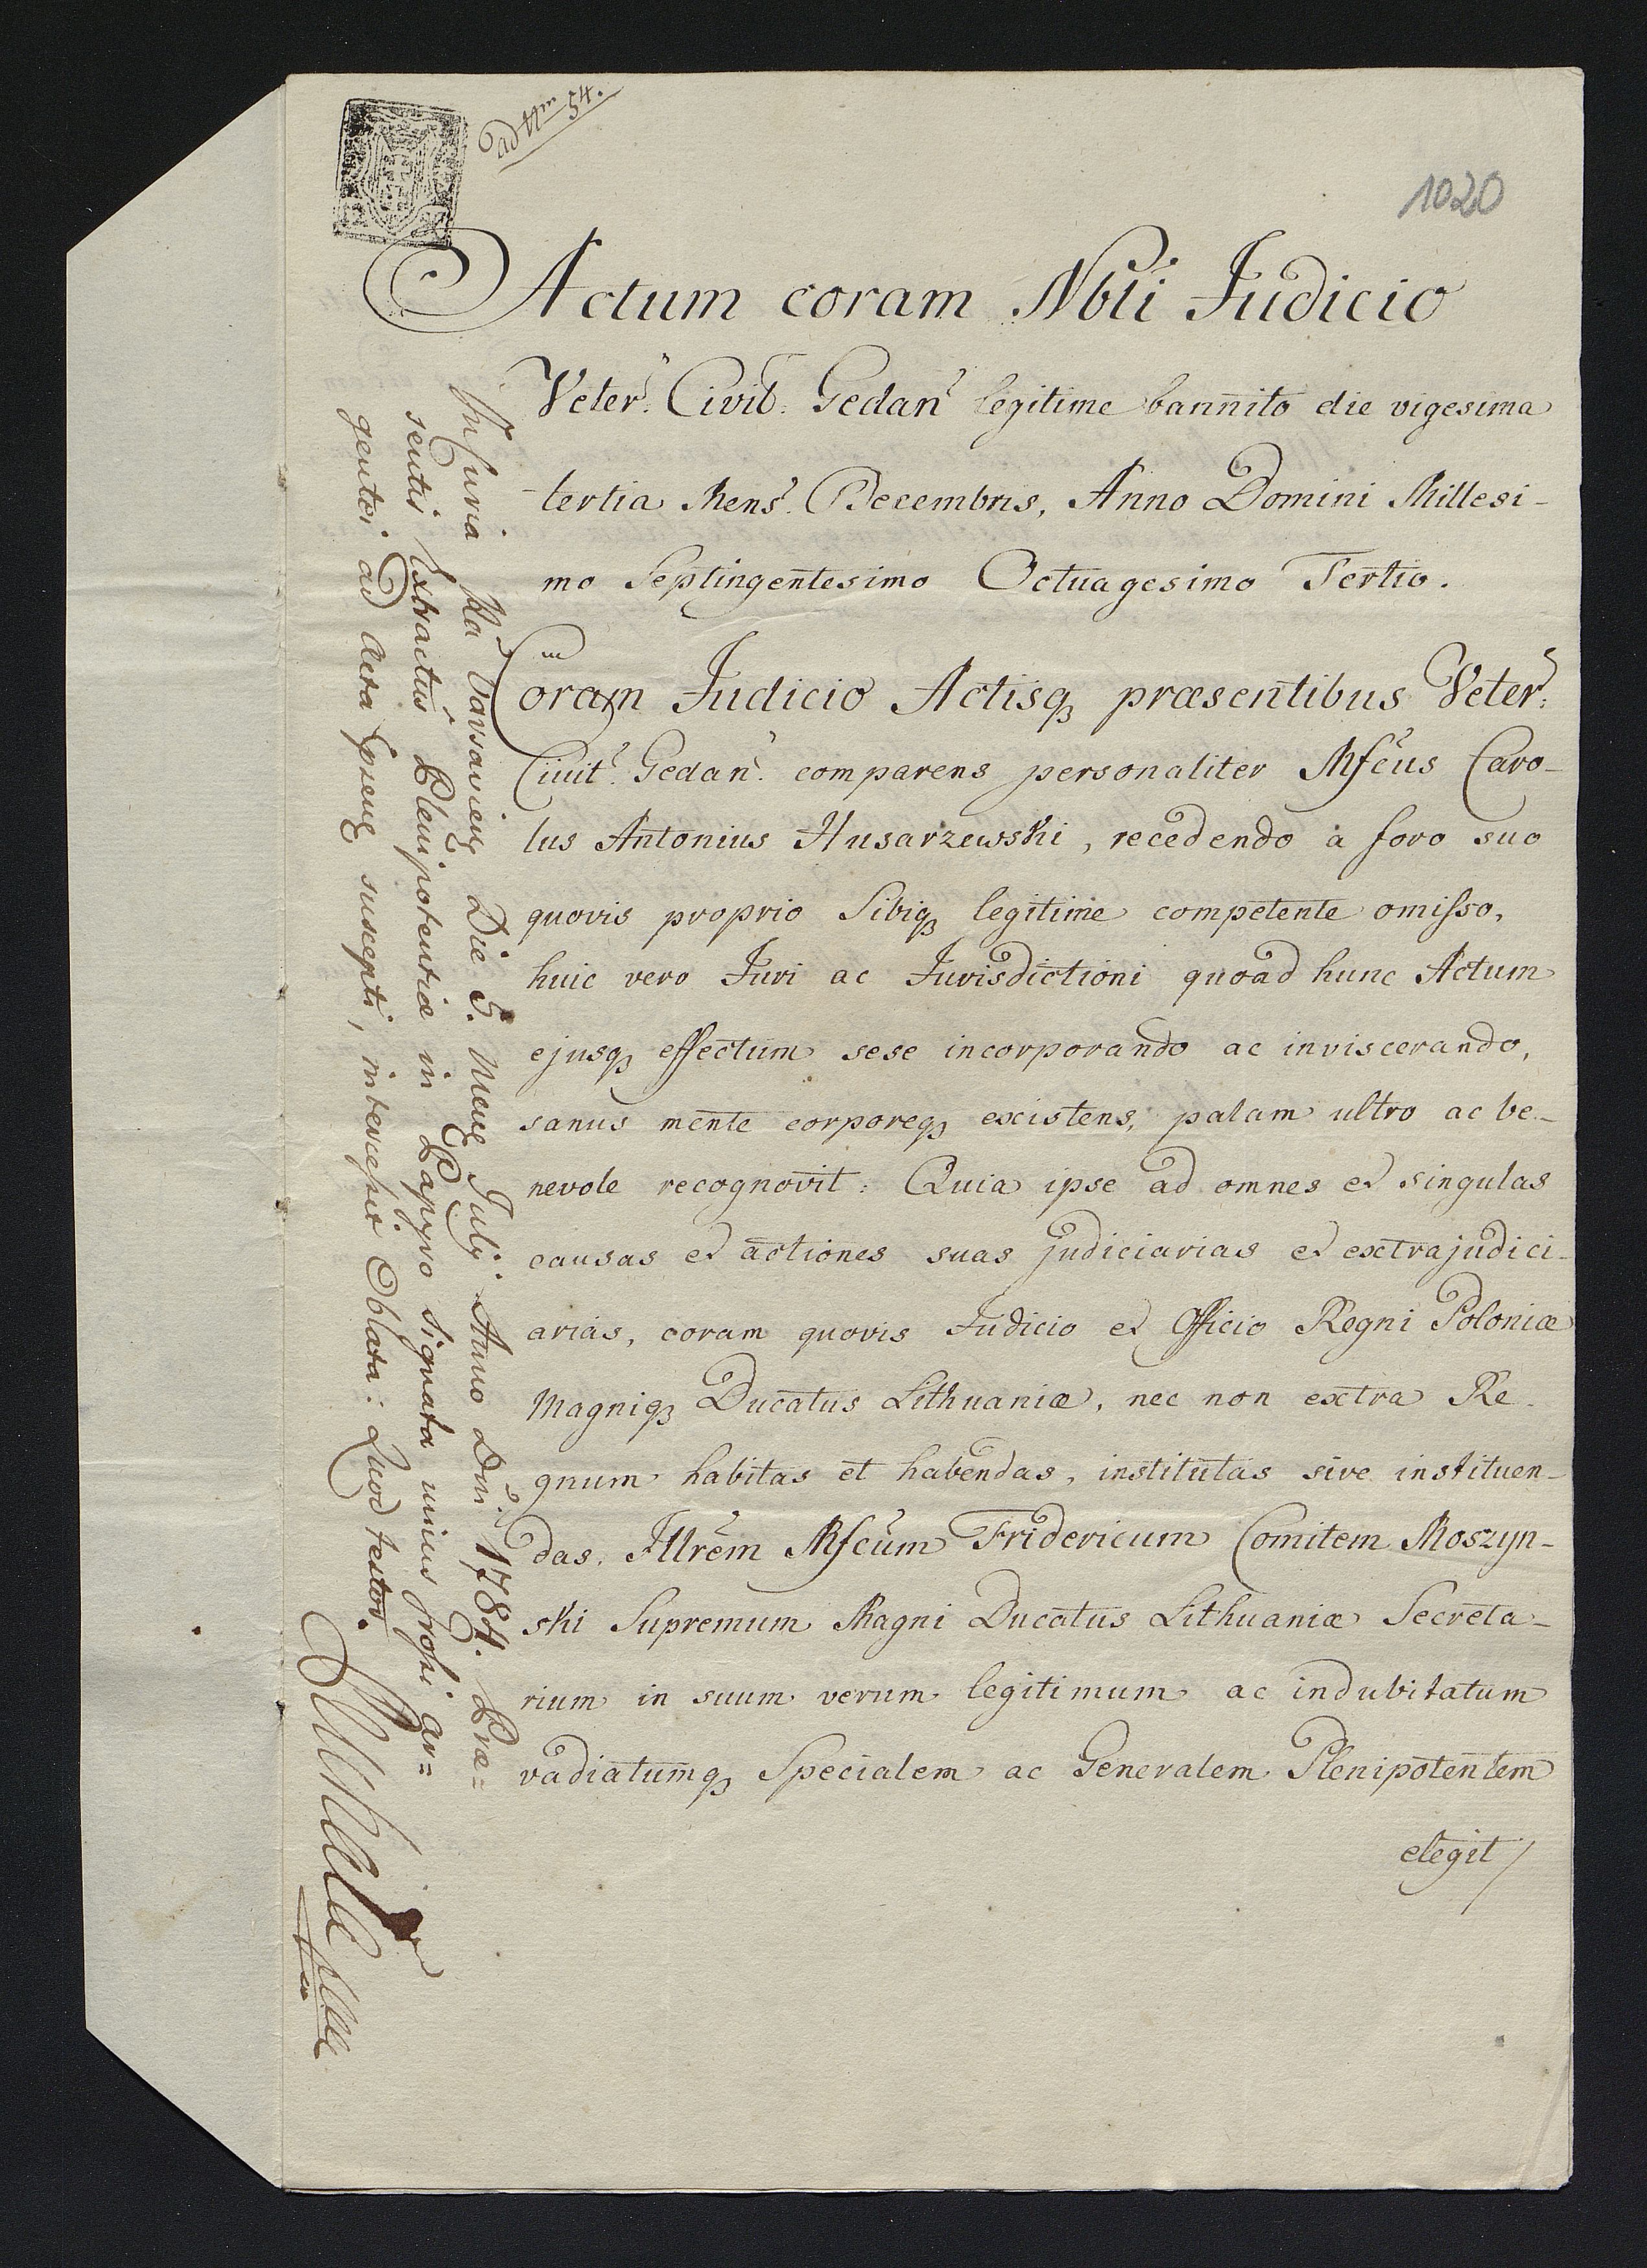 ad Nrm 54.
1020
Actum coram Nbli Judicio
Veter: Civit: Gedan legitime bannito die vigesima
tertia Mens. Decembris, Anno Domini Millesi-
mo Septingentesimo Octuagesimo Tertio.
Coram Judicio Actisq præsentibus Veter:
Civit: Gedan: comparens personaliter Mfcus Caro-
lus Antonius Husarzewski, recedendo a foro suo
quovis proprio Sibiq legitime competente omisso,
huic vero Juri ac Jurisdictioni quoad hunc Actum
ejusq effectum sese incorporando ac inviscerando,
sanus mente corporeq existens, palam ultro ac be-
nevole recognovit: Quia ipse ad omnes et singulas
causas et actiones suas judiciarias et extrajudici-
arias, coram quovis Judicio et Officio Regni Poloniæ
Magniq Ducatus Lithuaniæ, nec non extra Re-
gnum habitas et habendas, institutas sive instituen-
das, Illrem Mfcum Fridericum Comitem Moszyn-
ski Supremum Magni Ducatus Lithuaniæ Secreta-
rium in suum verum legitimum ac indubitatum
vadiatumq Specialem ac Generalem Plenipotentem
elegit
In Curia Rla Varsavien Die 5. Mens Julij Anno Dni 1784. Præ=
sentis Extractus Plenipotentiæ in Papyro signata unius grossi ar=
gentei ad Acta Præns suscepti, intercessit Oblata: Quod testor.